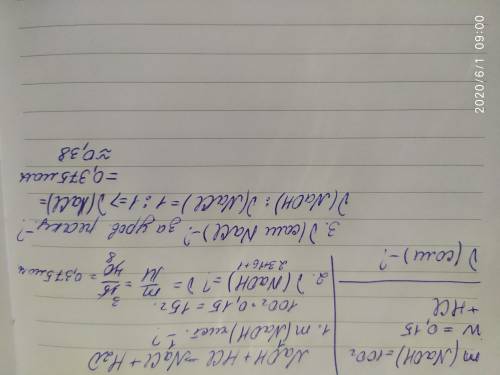 m(NaOH)=100г
w = 0,15
+ HCl
ν(соли) -?
NaOH + HCl = NaCl + H2O
1. m(NaOH) чист. -?
100г · 0,15 = 15г.
2. ν(NaOH) = ? ν = m/M = 15/40 = 0,375 моль
23+16+1
3
8
3. ν(соли NaCl) -? за урав реакц -?
ν(NaOH) : ν(NaCl) = 1 : 1 => ν(NaCl) =
= 0,375 моль
≈ 0,38
2020/6/1 09:00